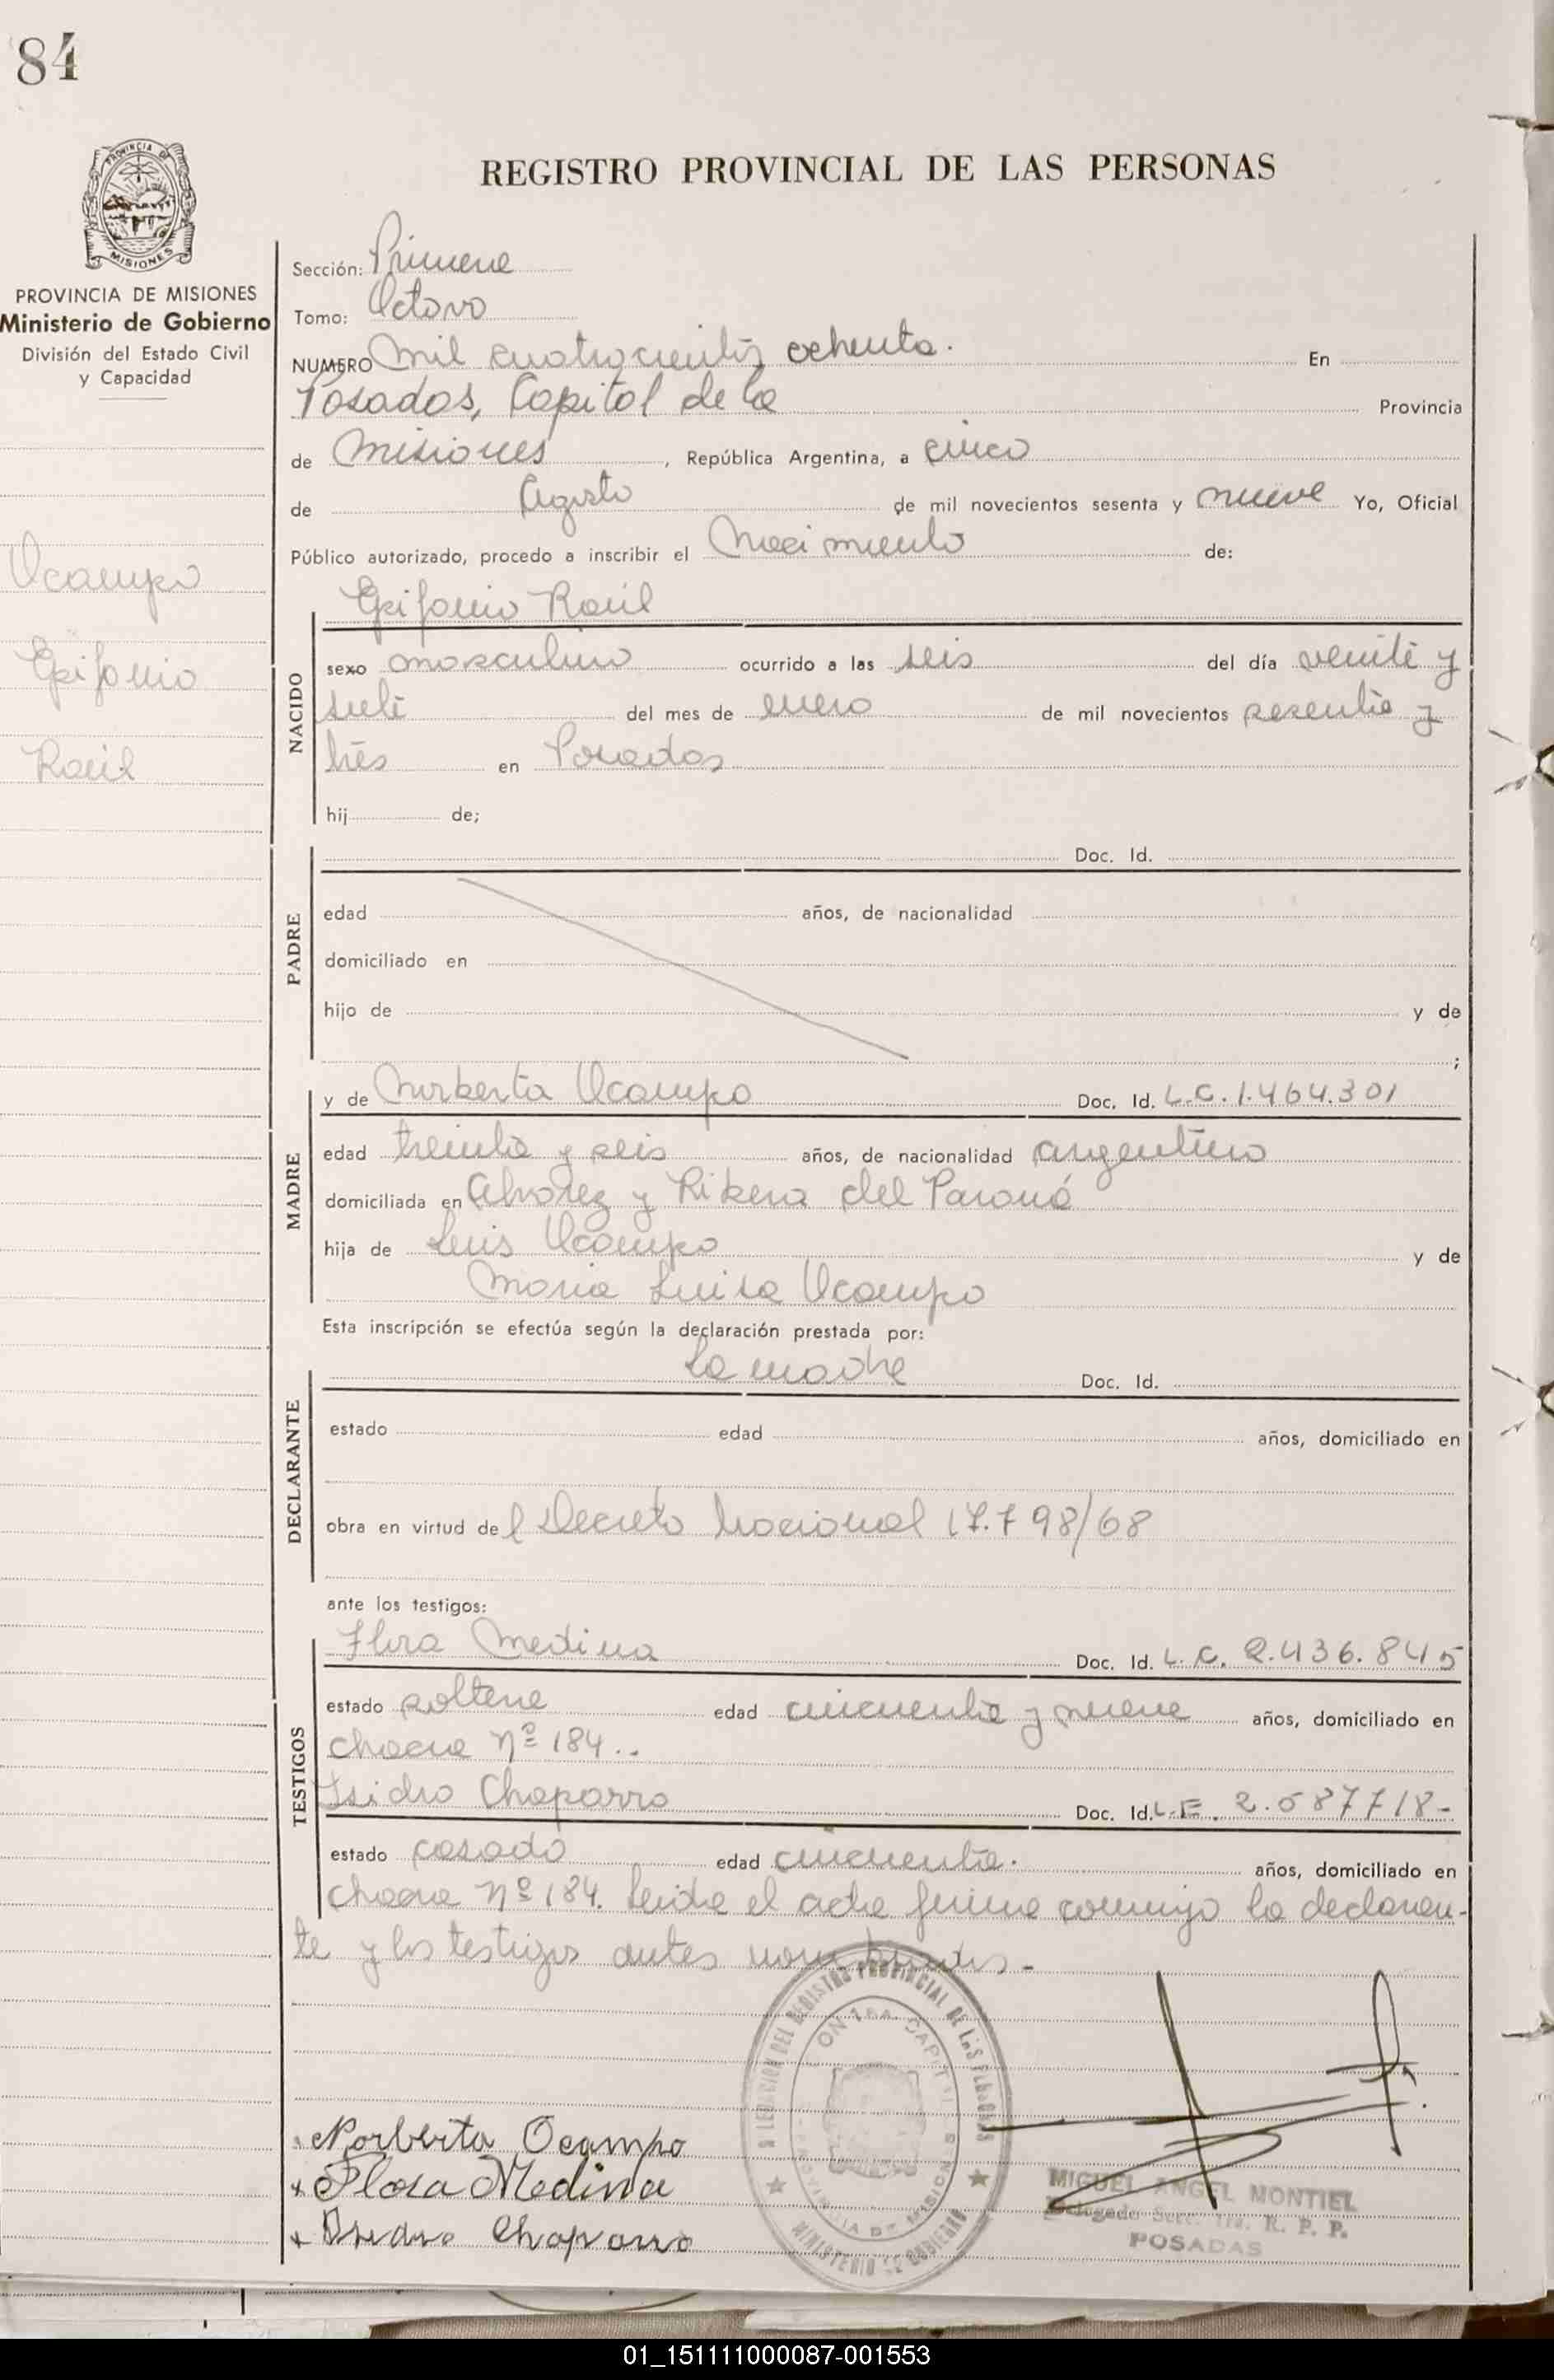 84
PROVINCIA DE
MISIONES
PROVINCIA DE MISIONES
Ministerio de Gobierno
División del Estado Civil
y Capacidad
Ocampo
Epifanio
Raúl
REGISTRO PROVINCIAL DE LAS PERSONAS
Sección: Primera
Tomo: Octavo
NUMERO Mil cuatrocientos ochenta. En
Posadas, Capital de la Provincia
de Misiones, República Argentina, a cinco
de Agosto de mil novecientos sesenta y nueve Yo, Oficial
Público autorizado, procedo a inscribir el Nacimiento de:
Epifanio Raúl
NACIDO
sexo masculino ocurrido a las seis del día veinte y
siete del mes de enero de mil novecientos sesenta y
tres en Posadas
hij de;
PADRE
Doc. Id.
edad años, de nacionalidad
domiciliado en
hijo de y de
;
MADRE
y de Norberta Ocampo Doc. Id. L.C. 1.464.301
edad treinta y seis años, de nacionalidad argentina
domiciliada en Alvarez y Ribera del Paraná
hija de Luis Ocampo y de
Maria Luisa Ocampo
Esta inscripción se efectúa según la declaración prestada por:
DECLARANTE
La madre Doc. Id.
estado edad años, domiciliado en
obra en virtud de l Decreto Nacional 17.798/68
ante los testigos:
TESTIGOS
Flora Medina Doc. Id. L.C. 2.436.845
estado soltera edad cincuenta y nueve años, domiciliado en
chacra Nº 184..
Isidro Chaparro Doc. Id. L.E. 2.587718-
estado casado edad cincuenta. años, domiciliado en
chacra Nº 184. Leida el acta firma conmigo la declaran-
te y los testigos antes nombrados.-
Norberta Ocampo
x Flora Medina
x Isidro Chaparro
DEL REGISTRO PROVINCIAL DE LAS PERSONAS
MINISTERIO DE GOBIERNO
PROVINCIA DE MISIONES
MIGUEL ANGEL MONTIEL
Delegado Secc. 1ra. R. P. P.
POSADAS
01_151111000087-001553